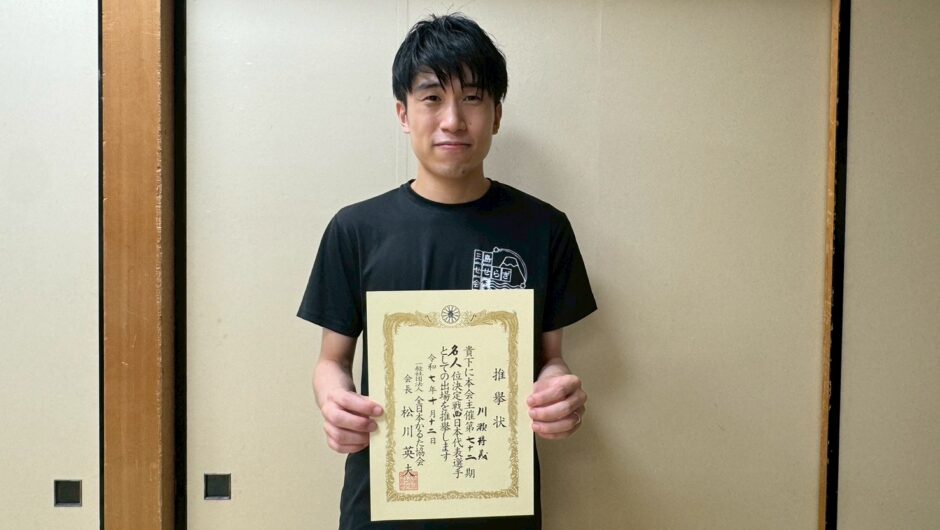 三島
せせらぎ
会
推挙状
川瀬将義
貴下に本会主催第七十二期
名人位決定戦西日本代表選手
としての出場を推挙します
令和七年十月十二日
一般社団法人 全日本かるた協会
会長 松川英夫